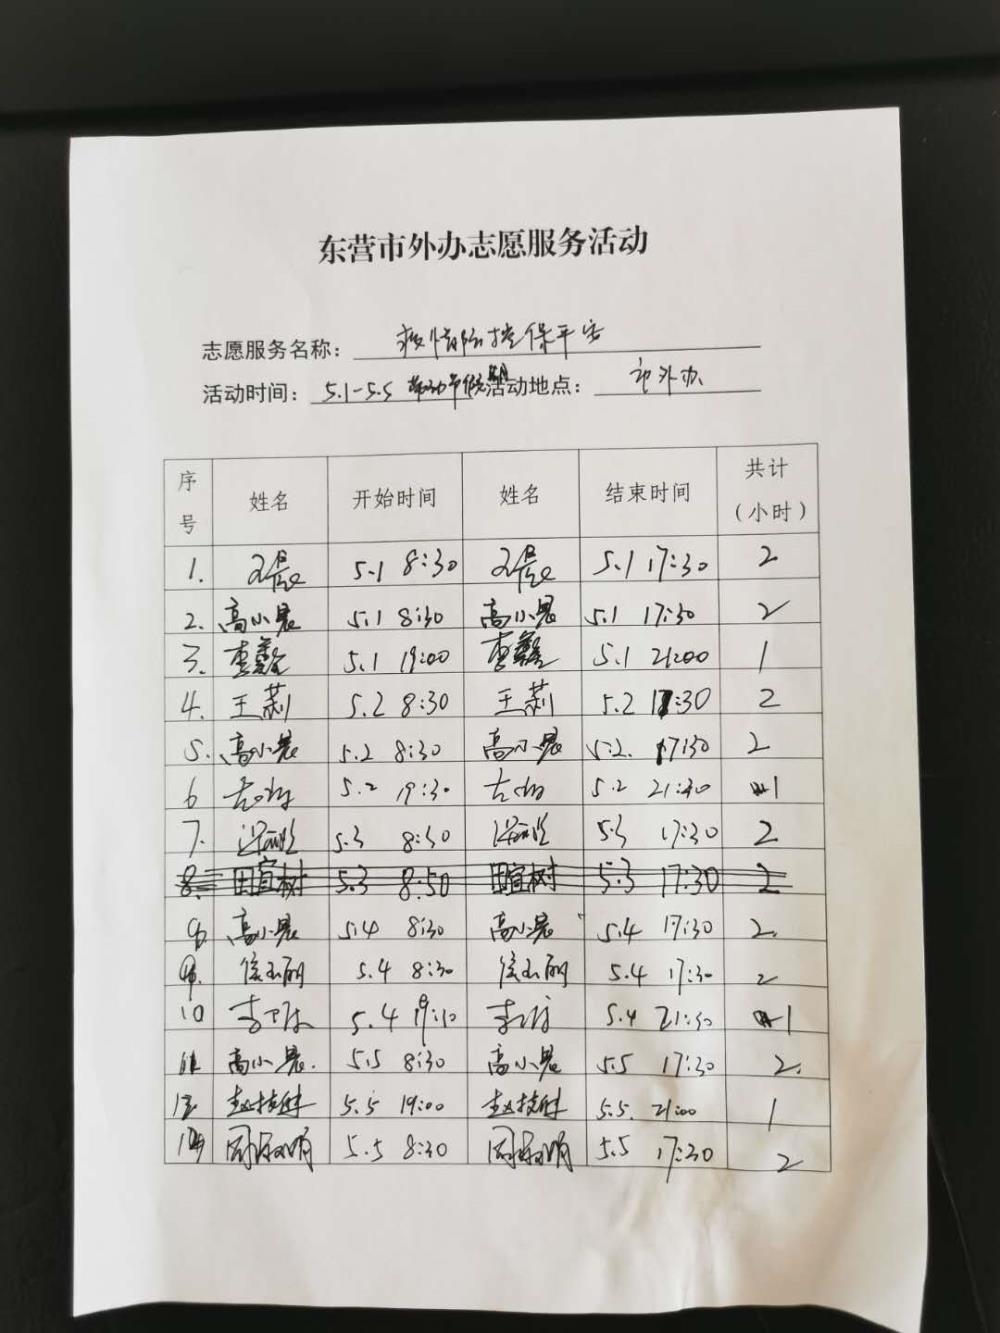 东营市外办志愿服务活动
志愿服务名称：疫情防控保平安
活动时间：5.1-5.5 劳动节假期 活动地点：市外办
序号 姓名 开始时间 姓名 结束时间 共计（小时）
1. 5.1 8:30 5.1 17:30 2
2. 高小晨 5.1 8:30 高小晨 5.1 17:30 2
3. 李鑫 5.1 19:00 李鑫 5.1 21:00 1
4. 王莉 5.2 8:30 王莉 5.2 17:30 2
5. 高小晨 5.2 8:30 高小晨 5.2. 17:30 2
6 5.2 19:30 5.2 21:30 1
7. 5.3 8:30 5.3 17:30 2
8. 田宜树 5.3 8:50 田宜树 5.3 17:30 2
9. 高小晨 5.4 8:30 高小晨 5.4 17:30 2.
侯玉丽 5.4 8:30 侯玉丽 5.4 17:30 2
10 5.4 19:30 5.4 21:30 1
11. 高小晨. 5.5 8:30 高小晨 5.5 17:30 2.
赵技胜 5.5 19:00 赵技胜 5.5. 21:00 1
5.5 8:30 5.5 17:30 2